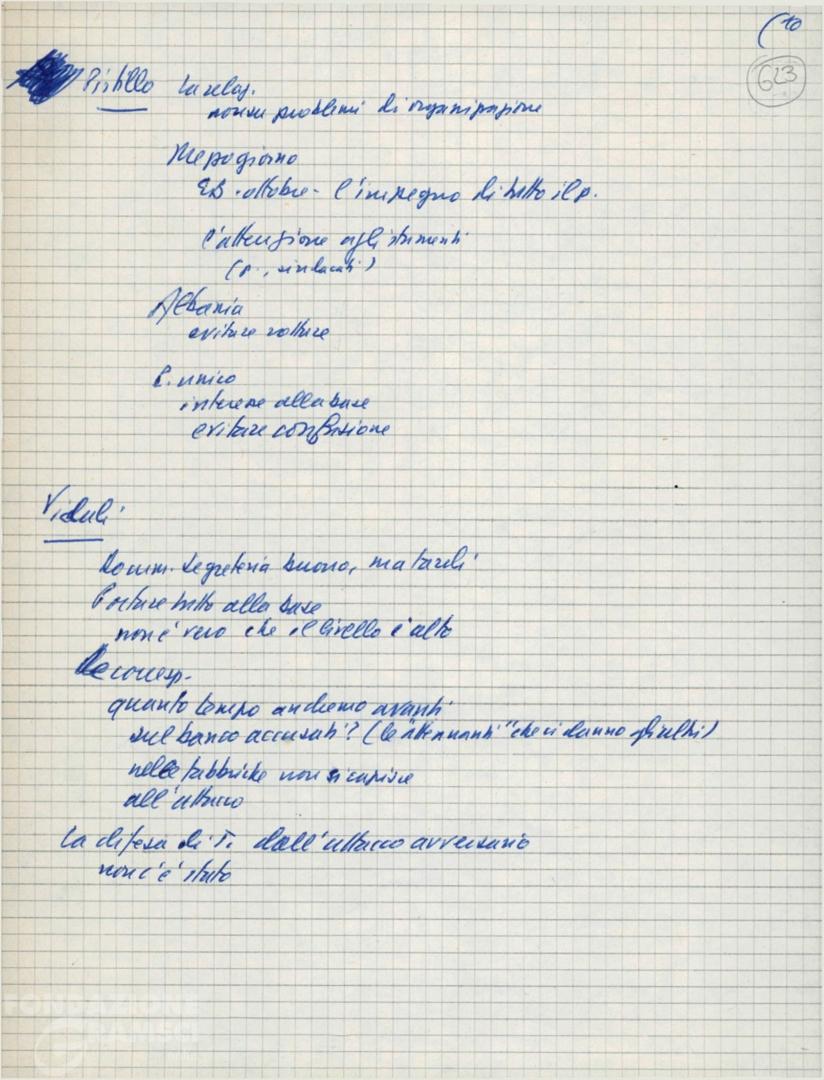 10
623
Pistillo La relaz.
nostri problemi di organizzazione
Mezzogiorno
EB. ottobre - l'impegno di tutto il p.
l'attenzione agli strumenti
(p., sindacati)
Albania
evitare rotture
P. unico
interesse alla base
evitare confusione
Vidali
Docum. Segreteria buono, ma tardi
Portare tutto alla base
non è vero che il livello è alto
De corresp.
quanto tempo andremo avanti
sul banco accusati? (le "attenuanti" che ci danno gli altri)
nelle fabbriche non si capisce
all'attacco
La difesa di T. dall'attacco avversario
non c'è stata
FONDAZIONE
GRAMSCI